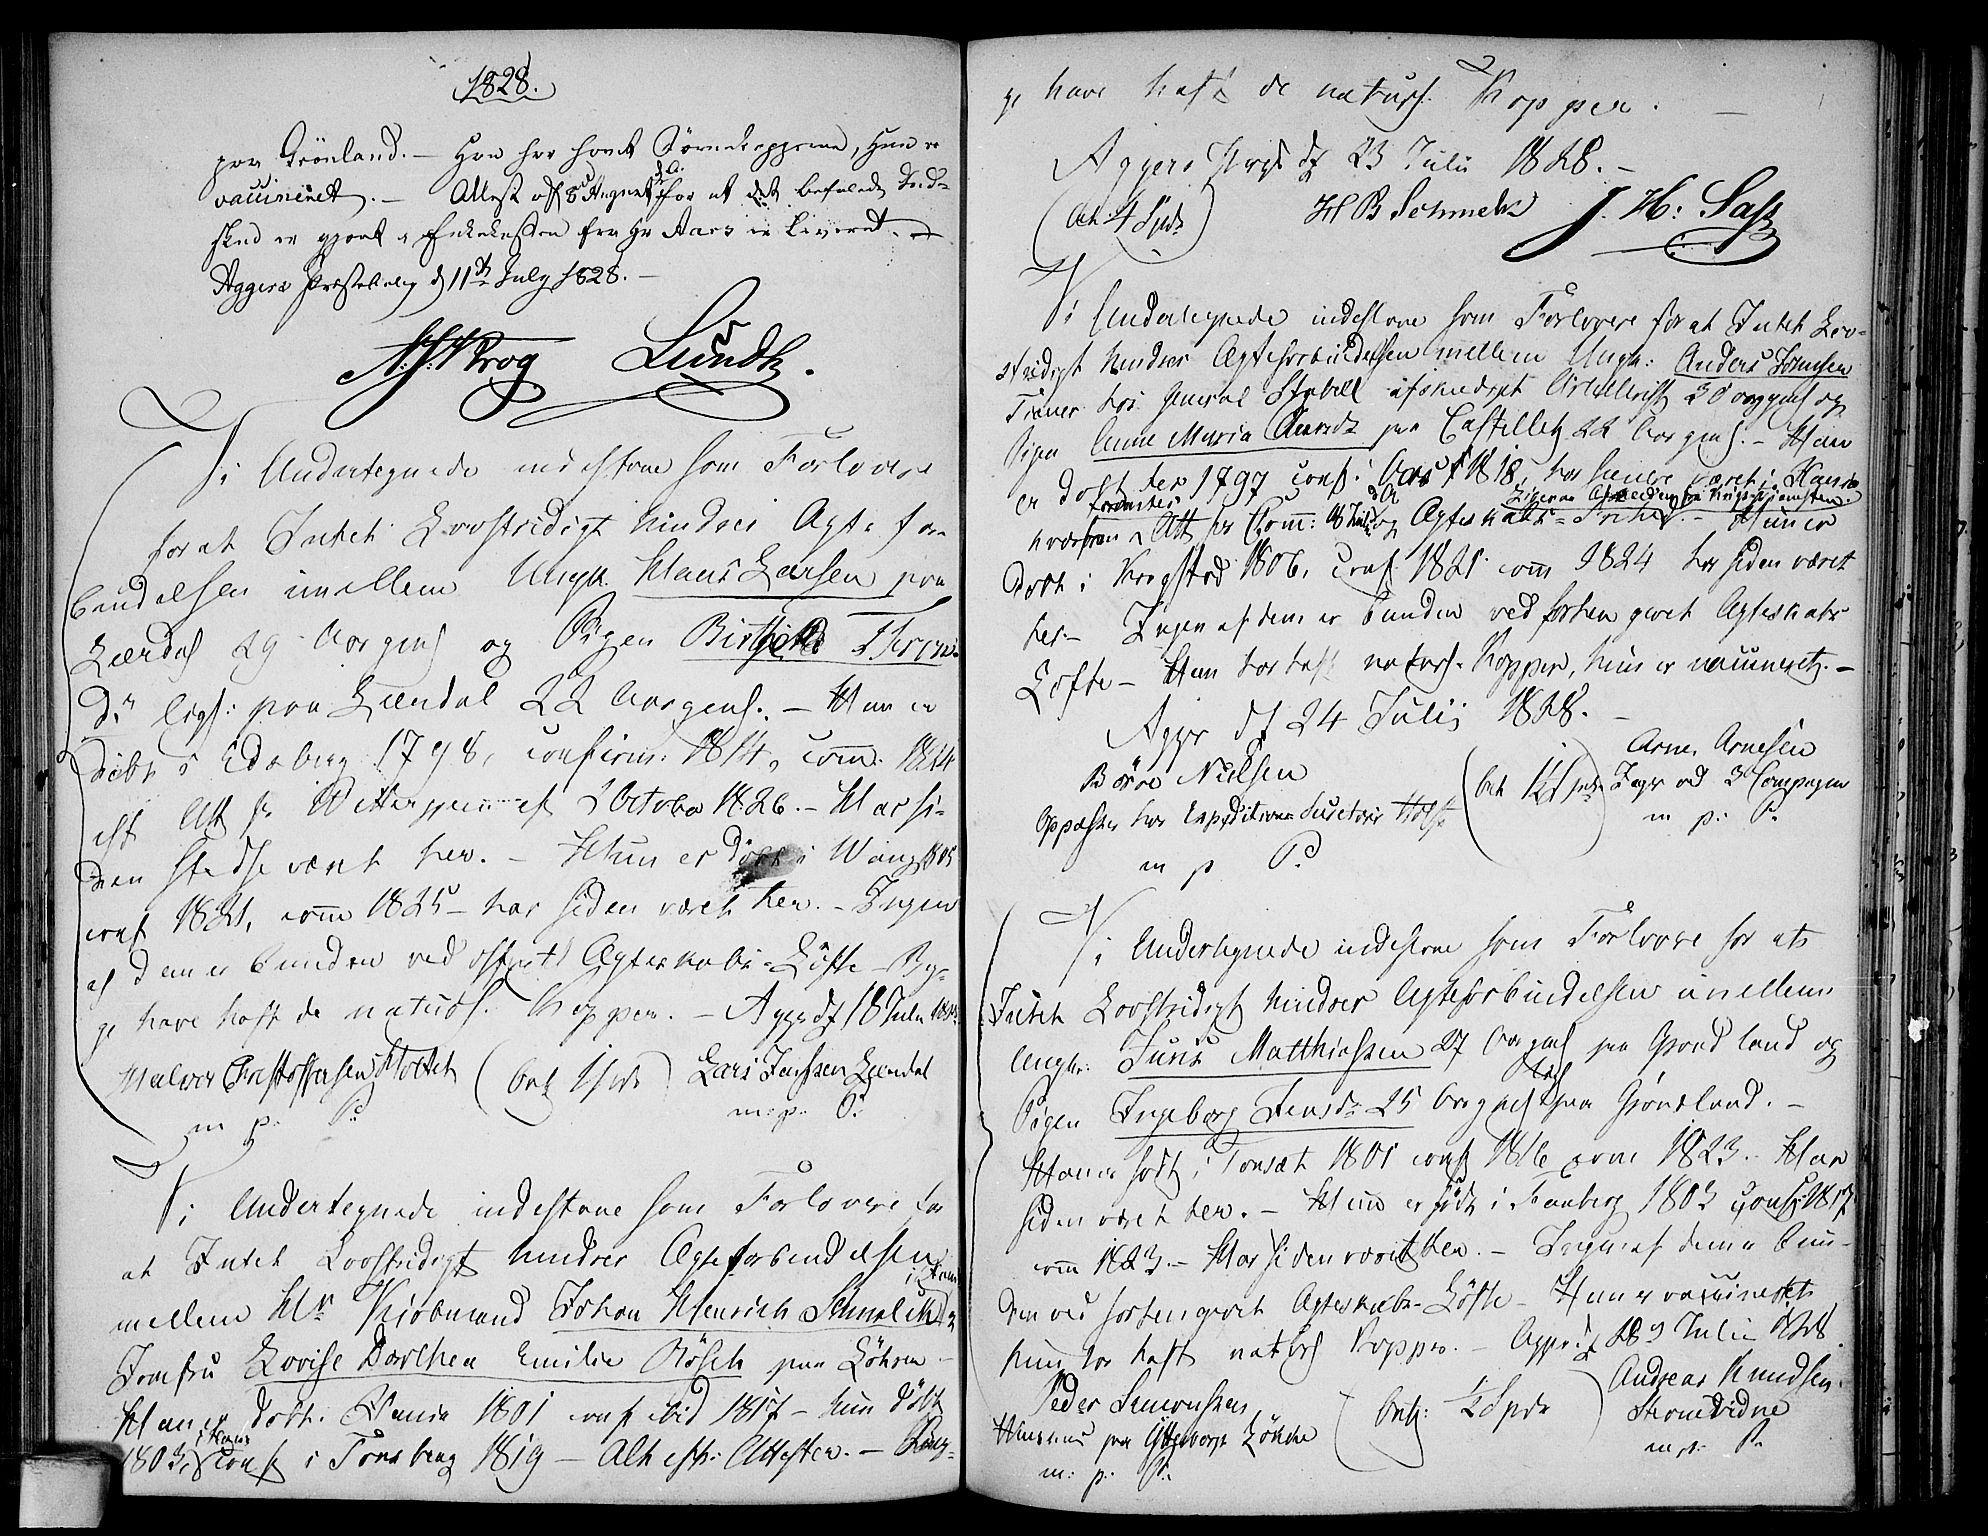 1828.
paa Grönland. — Han har havt Börnekopperne, Hun er
vaccineret. — Attest af 8 August for at det befalede
skud er gjort i Enkekassen fra Hr Aars er leveret. —
Aggers Præstebolig d 11te July 1828. —
Krog Lundh.
Vi Undertegnede indestaae som Forlovere
for at Intet Lovstridigt hindrer Ægtefor-
bindelsen imellem Ungk. Hans Larsen paa
Leerdal 29 Aar gml og Pigen Birthe
Dr ligl: paa Leerdal 22 Aar gml. — Han er
döbt i Edsberg 1798, confirm: 1814, com: 1824
Att fr October 1826. — Har si-
den stedse været her. — Hun er döbt i Wang 1805
conf 1821, com 1825 — har siden været her. — Ingen
af dem er bunden ved offentl Ægteskabs-Löfte — Beg-
ge have haft de naturl. Kopper. — Agger d 18 Julii 1828
Halvor Cristoffersen (bet 1 Spd) Lars Jensen Leerdal
m p. P. m: p: P:
Vi Undertegnede indestaae som Forlovere for
at Intet Lovstridigt hindrer Ægteforbindelsen
mellem Hr Kjöbmand Johan Henrich Schmelck
Jomfru Lovise Dorthea Emilie Rösch paa Lökken —
Han er döbt 1801 conf ibid 1817 — hun döbt
1803, conf i Tonsberg 1819 — Alt eft: Attester. — Beg-
ge have haft de naturl. Kopper. —
Aggers Prgd d 23 Julii 1828. —
(bet: 4 Spd) H B Schmelck J. H: Sass
Vi Undertegnede indestaae som Forlovere for at Intet Lov-
stridigt hindrer Ægteforbindelsen mellem Ungk: Anders
Tiener hos General Stabell afskediget Artillerist 30 aar gml og
Pigen Anne Maria paa Castellet 22 Aar gml. — Han
er döbt her 1797 conf: 1818, har senere været i
Att fra Com: 18 Julii og Ægteskabs-Frihed. — Hun er
Döbt i Kragstad 1806, conf 1821 com 1824 har siden været
her — Ingen af dem er bunden ved forhen givet Ægteskabs
Löfte — Han har haft naturl. Kopper, hun er vaccineret. —
Agger d 24 Julii 1828. —
Börre Nielsen (bet 1/2 Spd) Arne Arnesen
Oppasser hos Expeditions Secretair Holst Jæger ved 3 Compagnie
m p P. m p: P.
Vi Undertegnede indestaae som Forlovere for at
Intet Lovstridigt hindrer Ægteforbindelsen imellem
Ungk: Jens Matthiassen 27 Aar gml paa Grönland og
Pigen Ingeborg Jensdr 25 Aar gml paa Grönland. —
Han er födt i Tonsæt 1801 conf 1816 com 1823. Har
siden været her. — Hun er födt i Faaberg 1803 conf: 1817
com 1823. — Har siden været her. — Ingen af dem er bun-
den ved forhen givet Ægteskabs-Löfte — Han er vaccineret
hun har haft naturl Kopper. — Agger d 28 Julii 1828
Peder Simonsen (bet: 1/2 Spd) Andreas Knudsen
Huusmand paa Lökke
m: p: P: m. p: P.